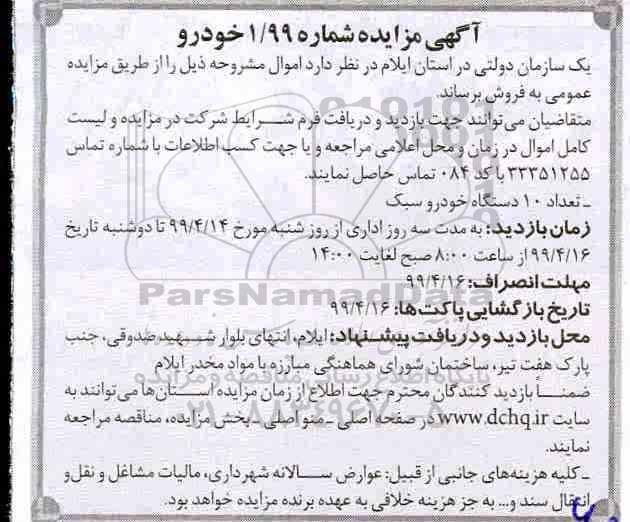 آگهی مزایده شماره ۱/۹۹ خودرو
یک سازمان دولتی در استان ایلام در نظر دارد اموال مشروحه ذیل را از طریق مزایده
عمومی به فروش برساند.
متقاضیان می‌توانند جهت بازدید و دریافت فرم شرایط شرکت در مزایده و لیست
کامل اموال در زمان و محل اعلامی مراجعه و یا جهت کسب اطلاعات با شماره تماس
۳۳۳۵۱۲۵۵ با کد ۰۸۴ تماس حاصل نمایند.
ـ تعداد ۱۰ دستگاه خودرو سبک
زمان بازدید: به مدت سه روز اداری از روز شنبه مورخ ۹۹/۴/۱۴ تا دوشنبه تاریخ
۹۹/۴/۱۶ از ساعت ۸:۰۰ صبح لغایت ۱۴:۰۰
مهلت انصراف: ۹۹/۴/۱۶
تاریخ بازگشایی پاکت‌ها: ۹۹/۴/۱۶
محل بازدید و دریافت پیشنهاد: ایلام، انتهای بلوار شهید صدوقی، جنب
پارک هفت تیر، ساختمان شورای هماهنگی مبارزه با مواد مخدر ایلام
ضمناً بازدید کنندگان محترم جهت اطلاع از زمان مزایده استان‌ها می‌توانند به
سایت www.dchq.ir در صفحه اصلی ـ منو اصلی ـ بخش مزایده، مناقصه مراجعه
نمایند.
ـ کلیه هزینه‌های جانبی از قبیل: عوارض سالانه شهرداری، مالیات مشاغل و نقل و
انتقال سند و... به جز هزینه خلافی به عهده برنده مزایده خواهد بود.
ParsNamadData